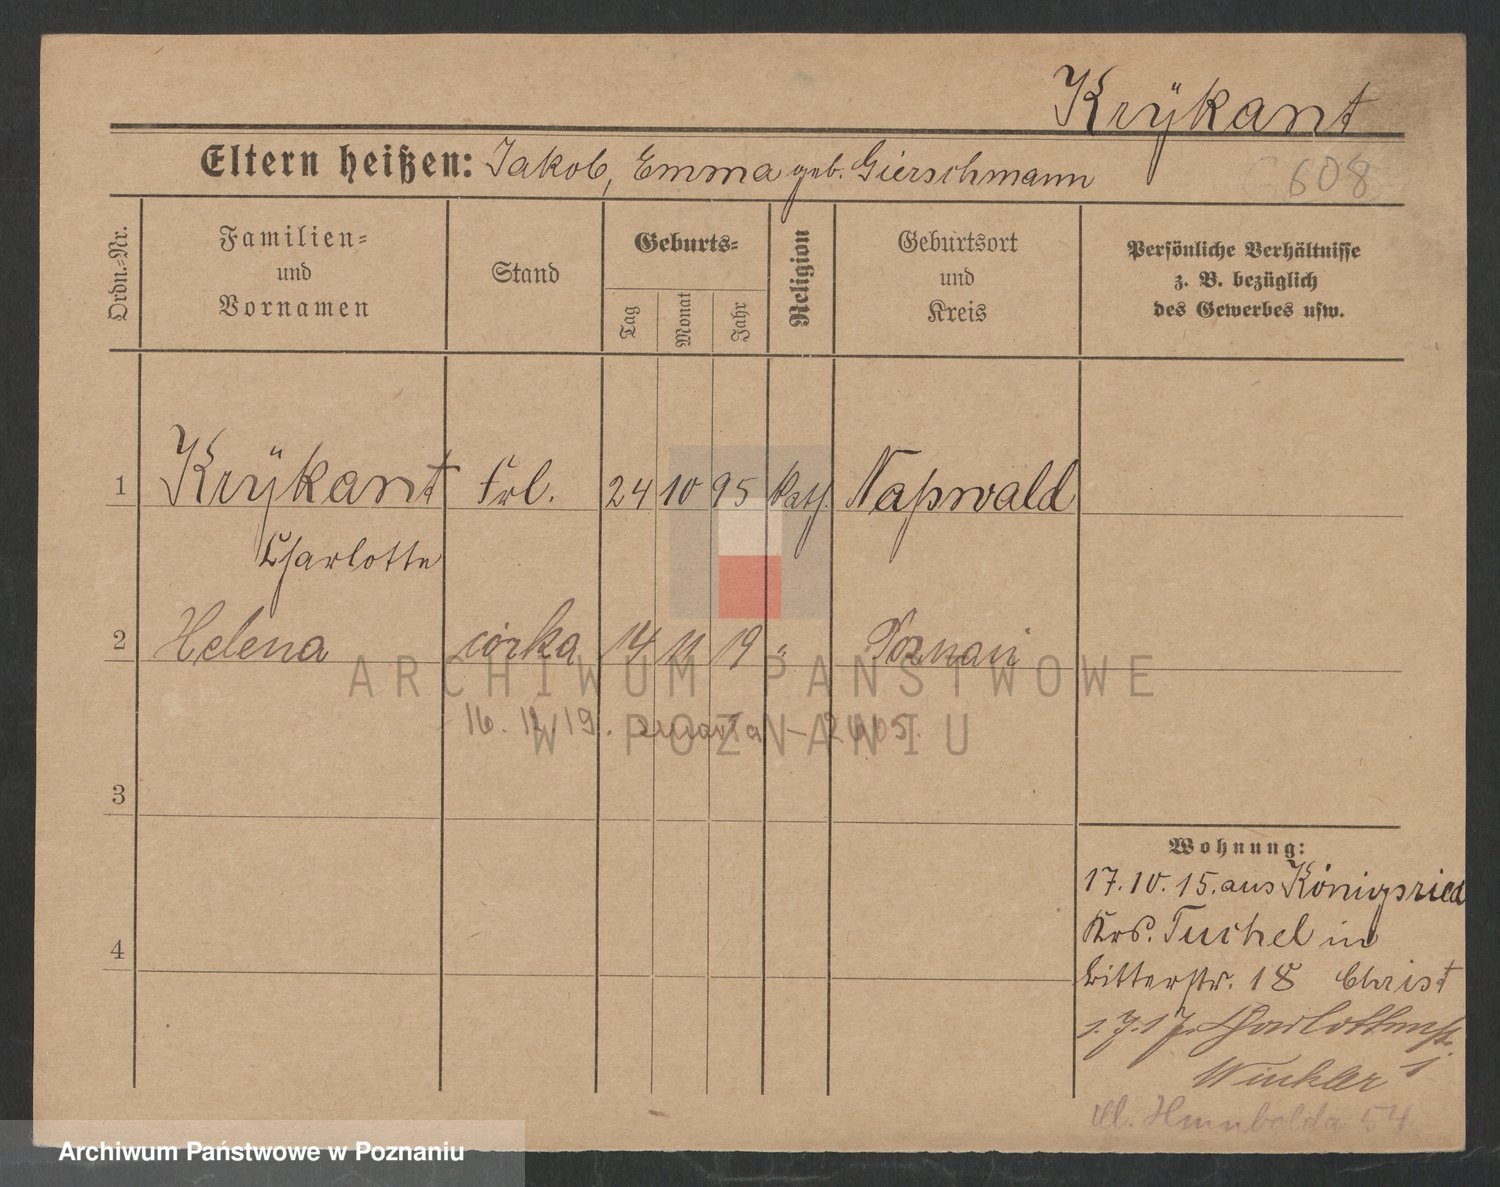 Krÿkant
Eltern heißen: Jakob, Emma geb. Gierschmann
608
Ordn.-Nr.
Familien-
und
Vornamen
Stand
Geburts-
Tag
Monat
Jahr
Religion
Geburtsort
und
Kreis
Persönliche Verhältnisse
z. B. bezüglich
des Gewerbes usw.
1 Krÿkant Frl. 24 10 95 kath. Naßwald
Charlotte
2 Helena córka 14 11 19 " Poznań
16. 11. 19. zmarła - 2605.
3
4
Wohnung:
17.10.15. aus Königsried
Krs. Tuchel in
Ritterstr. 18 Christ
1.7.17. Charlottenstr. 1
Winkler
Ul. Humbolda 54
ARCHIWUM PAŃSTWOWE
W POZNANIU
Archiwum Państwowe w Poznaniu